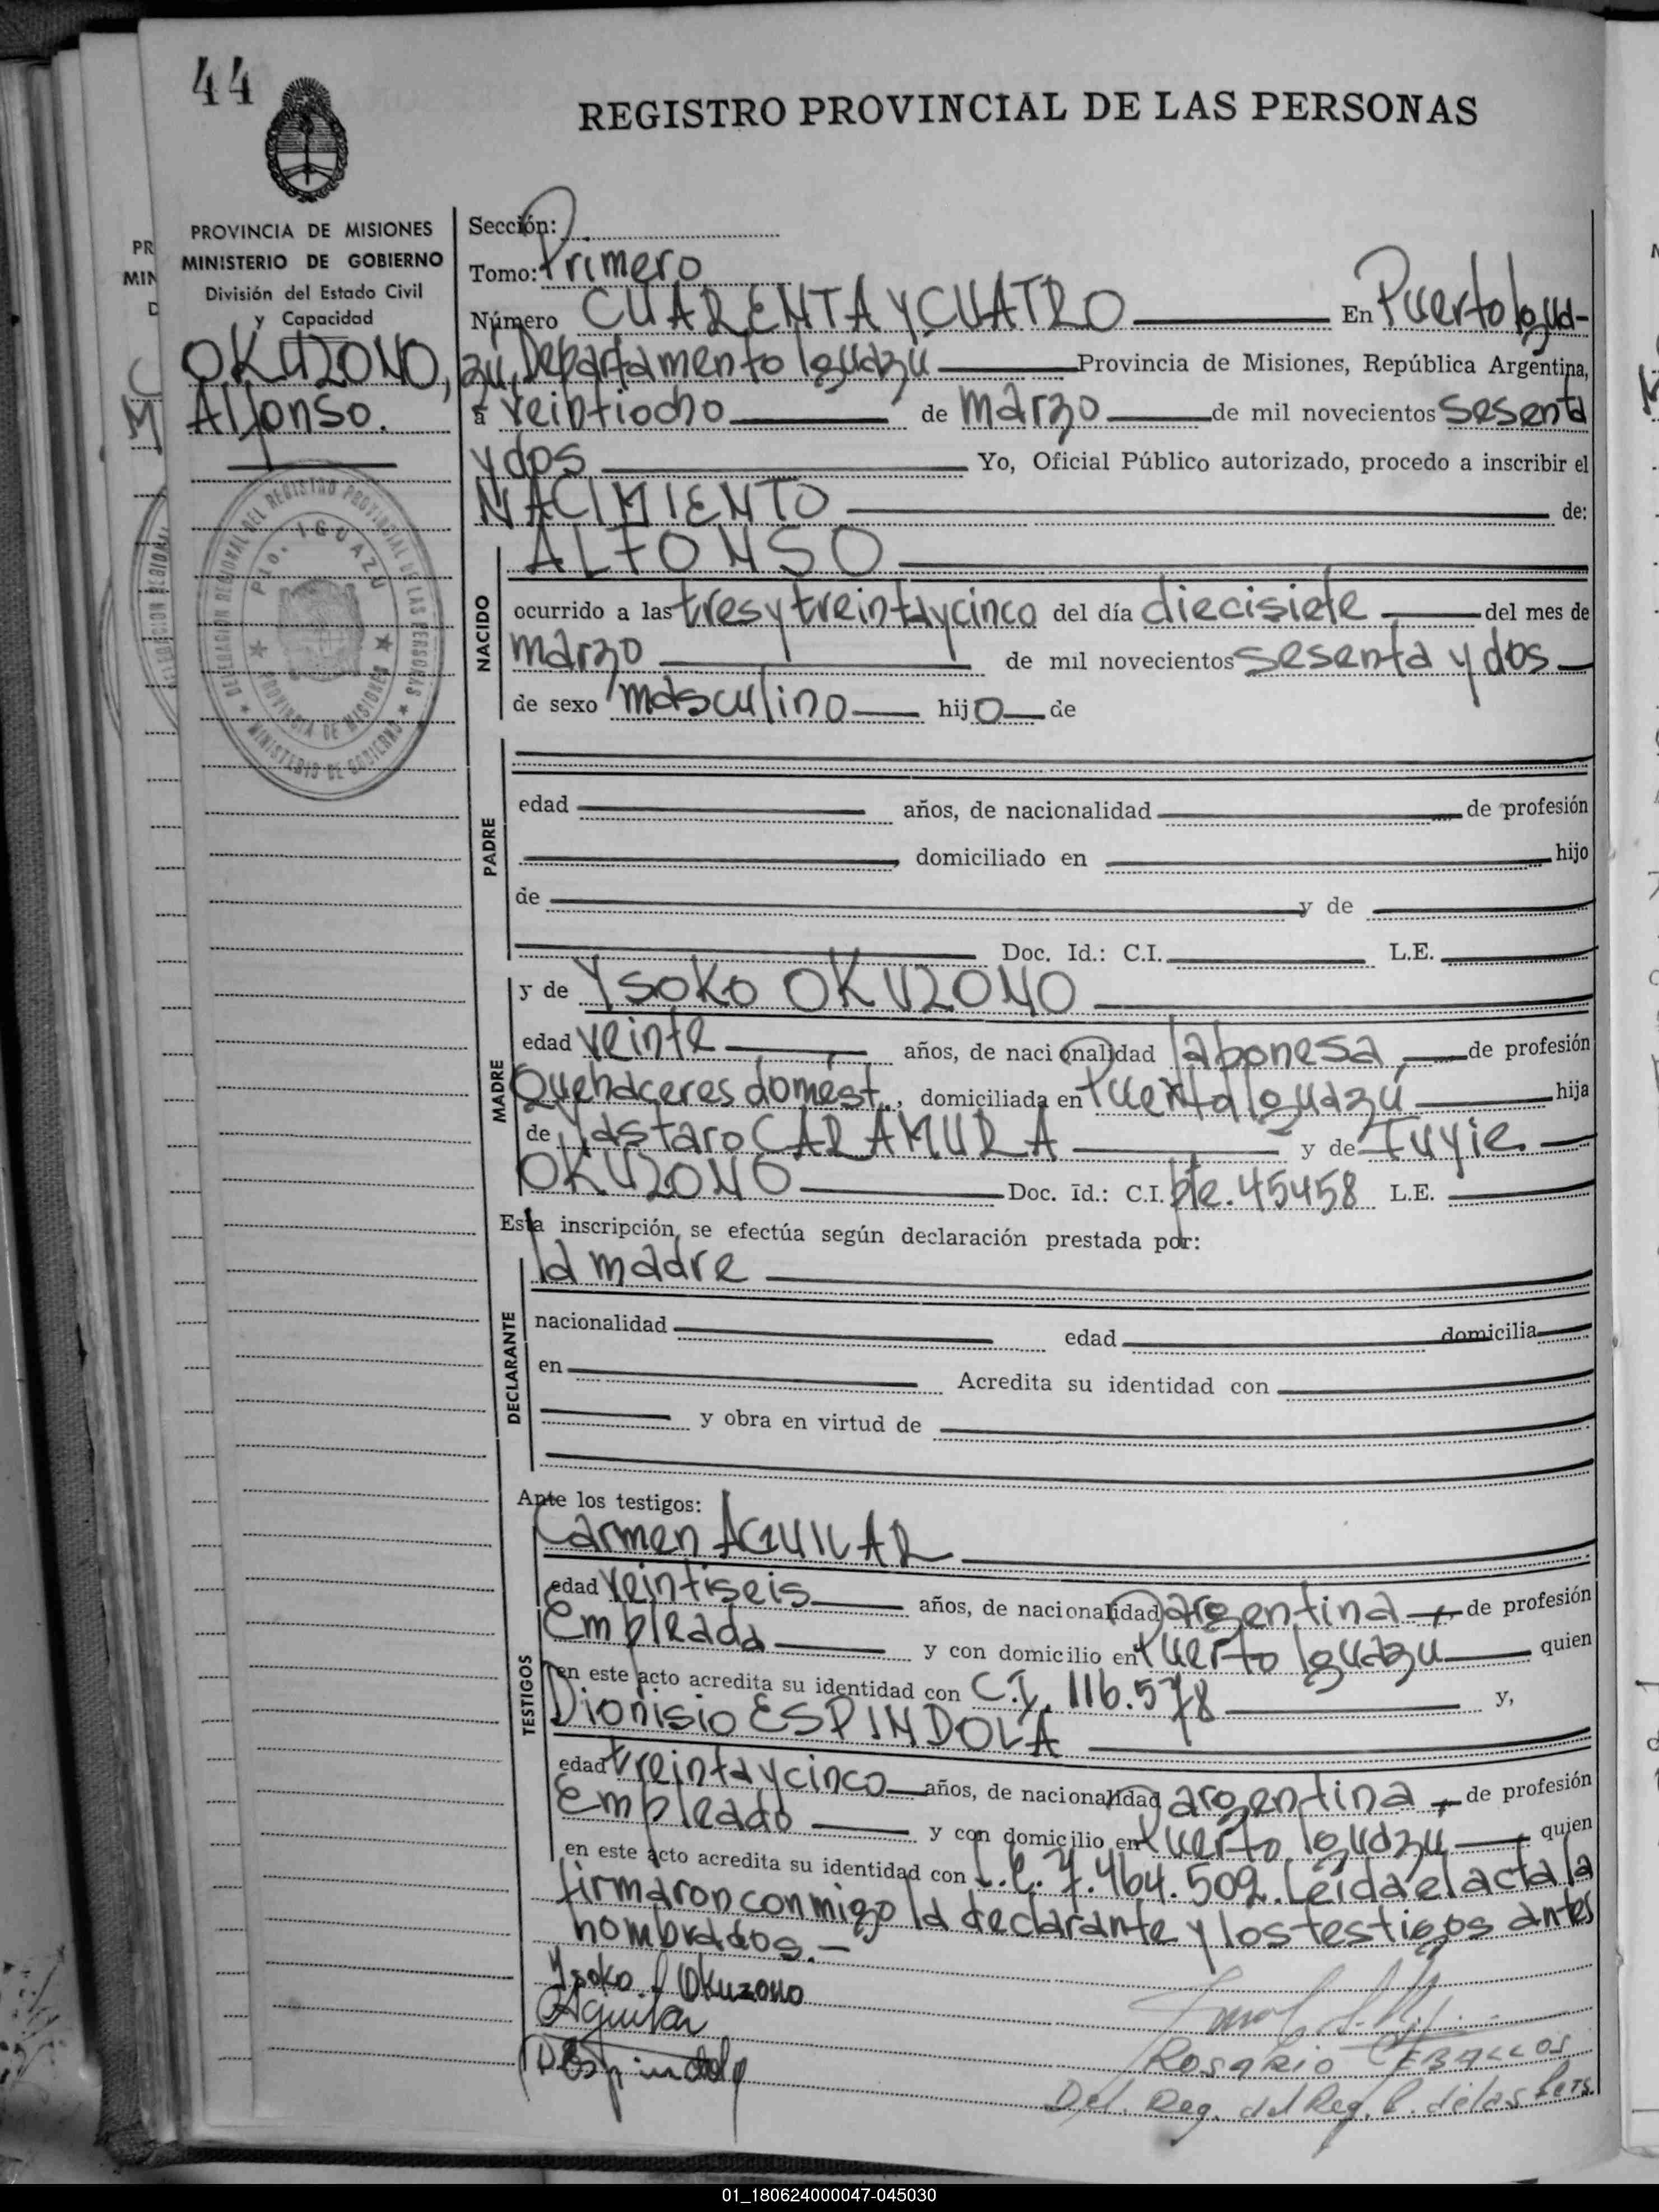 44
REGISTRO PROVINCIAL DE LAS PERSONAS
PROVINCIA DE MISIONES
MINISTERIO DE GOBIERNO
División del Estado Civil
y Capacidad
OKUZONO,
Alfonso.
DELEGACION REGIONAL DEL REGISTRO PROVINCIAL DE LAS PERSONAS
Pto. IGUAZU
PROVINCIA DE MISIONES
MINISTERIO DE GOBIERNO
Sección:
Tomo: Primero
Número CUARENTA Y CUATRO En Puerto Igua-
zú, Departamento Iguazú Provincia de Misiones, República Argentina,
a veintiocho de marzo de mil novecientos sesenta
y dos Yo, Oficial Público autorizado, procedo a inscribir el
NACIMIENTO de:
ALFONSO
NACIDO
ocurrido a las tres y treinta y cinco del día diecisiete del mes de
marzo de mil novecientos sesenta y dos
de sexo masculino hijo de
PADRE
edad años, de nacionalidad de profesión
domiciliado en hijo
de y de
Doc. Id.: C.I. L.E.
MADRE
y de Ysoko OKUZONO
edad veinte años, de nacionalidad Japonesa, de profesión
Quehaceres domést., domiciliada en Puerto Iguazú hija
de Yastaro CARAMURA y de Fuyie
OKUZONO Doc. Id.: C.I. pte. 45458 L.E.
Esta inscripción se efectúa según declaración prestada por:
la madre
DECLARANTE
nacionalidad edad domicilia
en Acredita su identidad con
y obra en virtud de
Ante los testigos:
TESTIGOS
Carmen AGUILAR
edad veintiseis años, de nacionalidad argentina, de profesión
Empleada y con domicilio en Puerto Iguazú quien
en este acto acredita su identidad con C.I. 116.578 y,
Dionisio ESPINDOLA
edad treinta y cinco años, de nacionalidad argentina, de profesión
Empleado y con domicilio en Puerto Iguazú quien
en este acto acredita su identidad con L.E. 7.464.509. Leída el acta la
firmaron conmigo la declarante y los testigos antes
nombrados.-
Ysoko Okuzono
Aguilar
D Espindola
Rosario CEBALLOS
Del. Reg. del Reg. P. de las Pers.
01_180624000047-045030